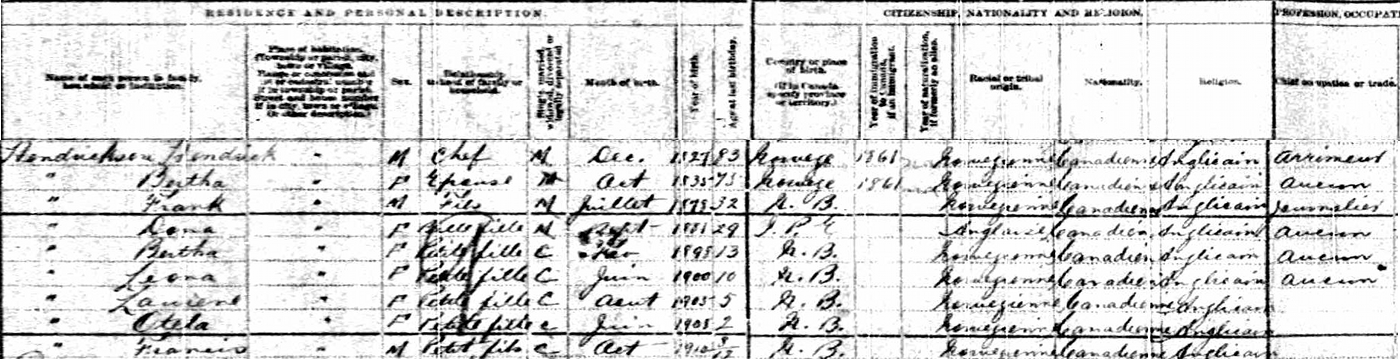 RESIDENCE AND PERSONAL DESCRIPTION.
CITIZENSHIP, NATIONALITY AND RELIGION.
PROFESSION, OCCUPATI
Name of each person in family, household or institution.
Place of habitation.
Sex.
Relationship to head of family or household.
Month of birth.
Year of birth.
Age at last birthday.
Country or place of birth. (If in Canada specify province or territory.)
Year of immigration to Canada, if an immigrant.
Year of naturalization, if formerly an alien.
Racial or tribal origin.
Nationality.
Religion.
Chief occupation or trade.
Hendrickson Hendrick " M Chef M Dec. 1827 83 Norvege 1861 Norvegienne Canadienne Anglicain Arrimeur
" Bertha " F Epouse M Oct 1835 75 Norvege 1861 Norvegienne Canadienne Anglicain aucun
" Frank " M Fils M Juillet 1879 32 N. B. Norvegienne Canadienne Anglicain Journalier
" " F Belle fille M Sept 1881 29 I. P. E Anglaise Canadienne Anglicain aucun
" Bertha " F Petite fille C 1898 13 N. B. Norvegienne Canadienne Anglicain aucun
" Leona " F Petite fille C Juin 1900 10 N. B. Norvegienne Canadienne Anglicain aucun
" " F Petite fille C Aout 1905 5 N. B. Norvegienne Canadienne Anglicain
" Otela " F Petite fille C Juin 1908 2 N. B. Norvegienne Canadienne Anglicain
" Francis M Petit fils C Oct 1910 N. B. Norvegienne Canadienne Anglicain